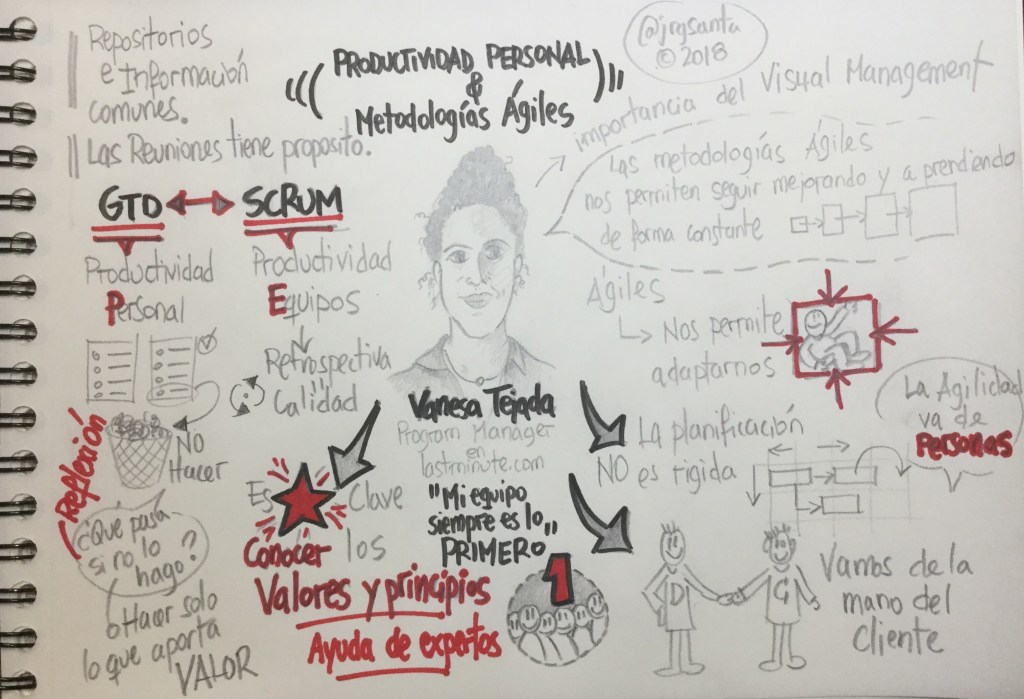 Repositorios
e Información
comunes.
Las Reuniones tiene proposito.
PRODUCTIVIDAD PERSONAL
&
Metodologías Ágiles
@jrgsanta
© 2018
importancia del Visual Management
Las metodologías Ágiles
nos permiten seguir mejorando y aprendiendo
de forma constante
GTD SCRUM
Productividad
Personal
Productividad
Equipos
Retrospectiva
Calidad
NO
Hacer
Reflexión
¿Qué pasa
si no lo
hago?
Hacer solo
lo que aporta
VALOR
Es Clave
Conocer los
Valores y principios
Ayuda de expertos
Vanesa Tejada
Program Manager
en
lastminute.com
"Mi equipo
siempre es lo
PRIMERO"
1
Ágiles
Nos permite
adaptarnos
La planificación
NO es rigida
La Agilidad
va de
Personas
D G
Vamos de la
mano del
Cliente